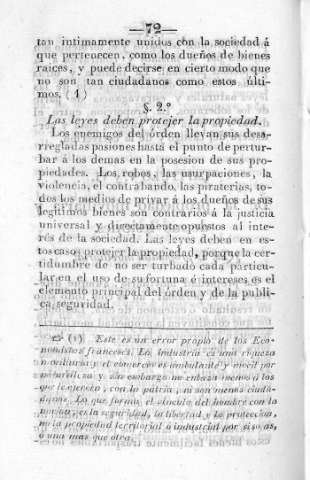 —72—
tan intimamente unidos con la sociedad á
que pertenecen, como los dueños de bienes
raices, y puede decirse en cierto modo que
no son tan ciudadanos como estos últi-
mos. (1)
§. 2.º
Las leyes deben protejer la propiedad.
Los enemigos del órden llevan sus desar-
regladas pasiones hasta el punto de pertur-
bar á los demas en la posesion de sus pro-
piedades. Los robos, las usurpaciones, la
violencia, el contrabando, las piraterias, to-
dos los medios de privar á los dueños de sus
legítimos bienes son contrarios á la justicia
universal y directamente opuestos al inte-
rés de la sociedad. Las leyes deben en es-
tos casos protejer la propiedad, porque la cer-
tidumbre de no ser turbado cada particu-
lar en el uso de su fortuna é intereses es el
elemento principal del órden y de la públi-
ca seguridad.
(1) Este es un error propio de los Eco-
nomistas franceses. La industria es una riqueza
y el comercio es ambulante y movil por
naturaleza y sin embargo no enlaza menos á los
que le ejercen, con la patria, ni son menos ciuda-
danos. Lo que forma el vínculo del hombre con la
es la seguridad, la libertad y la proteccion,
no la propiedad territorial ó industrial por sí solas,
ó una mas que otra.